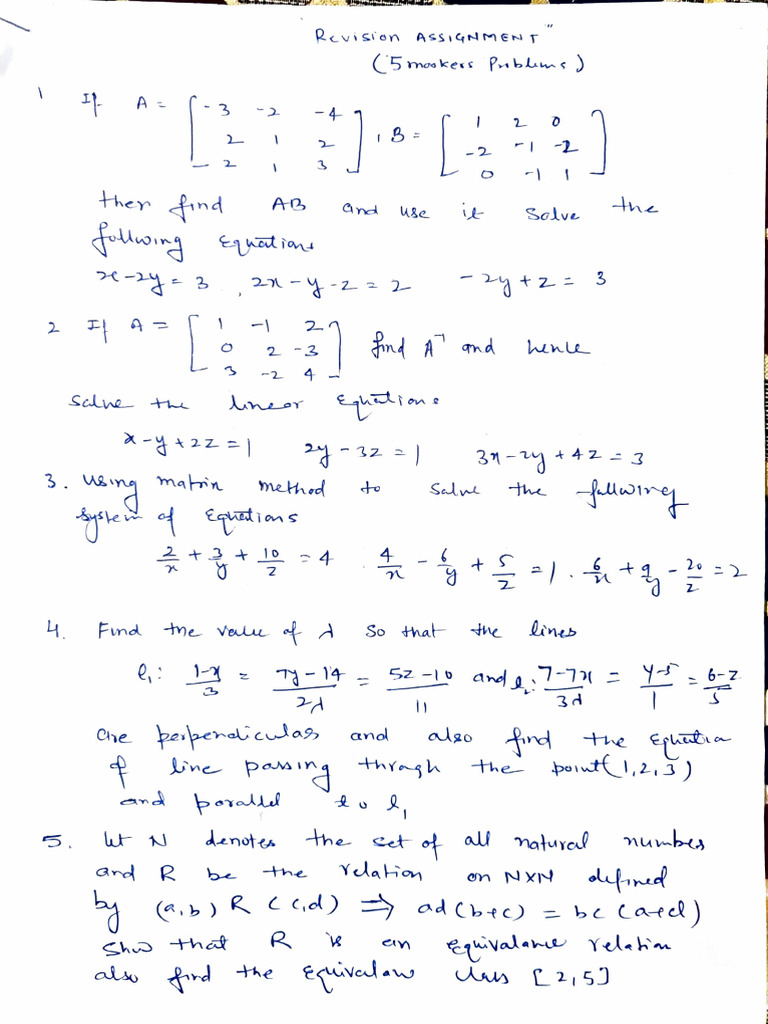 Revision ASSIGNMENT"
(5 mookers Problems)
1 If A = [ -3 -2 -4
2 1 2
2 1 3 ] , B = [ 1 2 0
-2 -1 -2
0 -1 1 ]
then find AB and use it solve the
following Equations
x-2y = 3 , 2x - y - z = 2 -2y + z = 3
2 If A = [ 1 -1 2
0 2 -3
3 -2 4 ] find A⁻¹ and hence
solve the linear Equations
x-y+2z=1 2y-3z=1 3x-2y+4z=3
3. Using matrix method to solve the following
system of Equations
2/x + 3/y + 10/z = 4 . 4/x - 6/y + 5/z = 1 . 6/x + 9/y - 20/z = 2
4. Find the value of λ so that the lines
l₁: 1-x/3 = 7y-14/2λ = 5z-10/11 and l₂: 7-7x/3λ = y-5/1 = 6-z/5
are perpendicular and also find the Equation
of line passing through the point (1,2,3)
and parallel to l₁
5. let N denotes the set of all natural numbers
and R be the relation on N×N defined
by (a,b) R (c,d) ⇒ ad(b+c) = bc(a+d)
Show that R is an equivalance relation
also find the equivalan class [2,5]